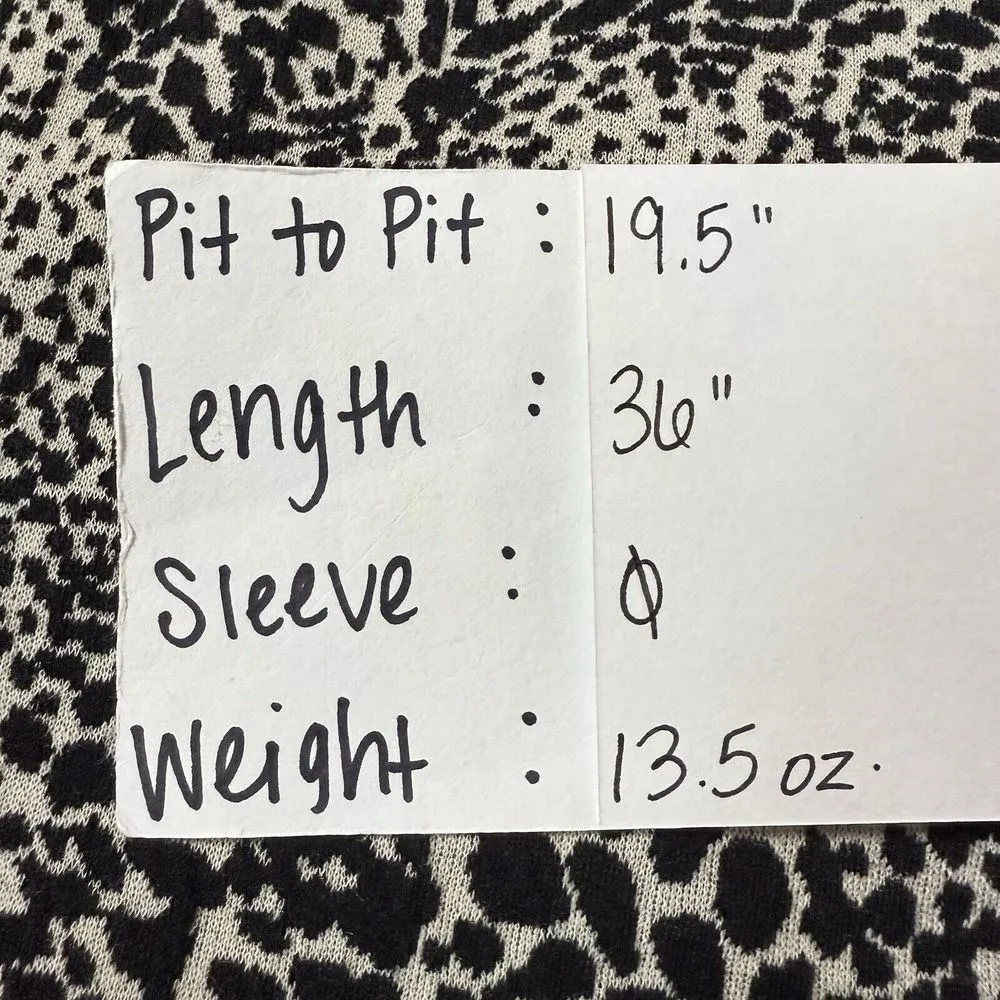 Pit to Pit : 19.5"
Length : 36"
Sleeve : Ø
Weight : 13.5 oz.